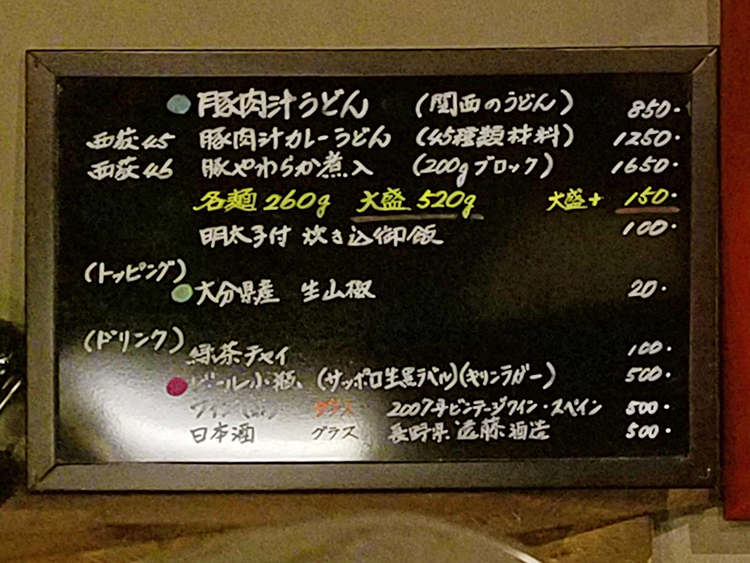 豚肉汁うどん （関西のうどん） 850.
西荻45 豚肉汁カレーうどん （45種類材料） 1250.
西荻46 豚やわらか煮入 （200gブロック） 1650.
各麺260g 大盛520g 大盛+ 150.
明太子付 炊き込御飯 100.
（トッピング）
大分県産 生山椒 20.
（ドリンク）
緑茶チャイ 100.
ビール小瓶、（サッポロ生黒ラベル）（キリンラガー） 500.
ワイン グラス 2007年ビンテージワイン・スペイン 500.
日本酒 グラス 長野県 遠藤酒造 500.